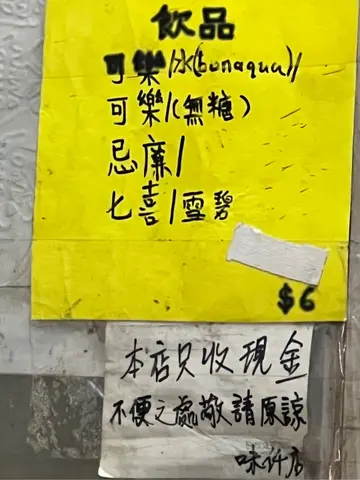 飲品
可樂/水(bonaqua)/
可樂/(無糖)
忌廉/
七喜/雪碧
$6
本店只收現金
不便之處敬請原諒